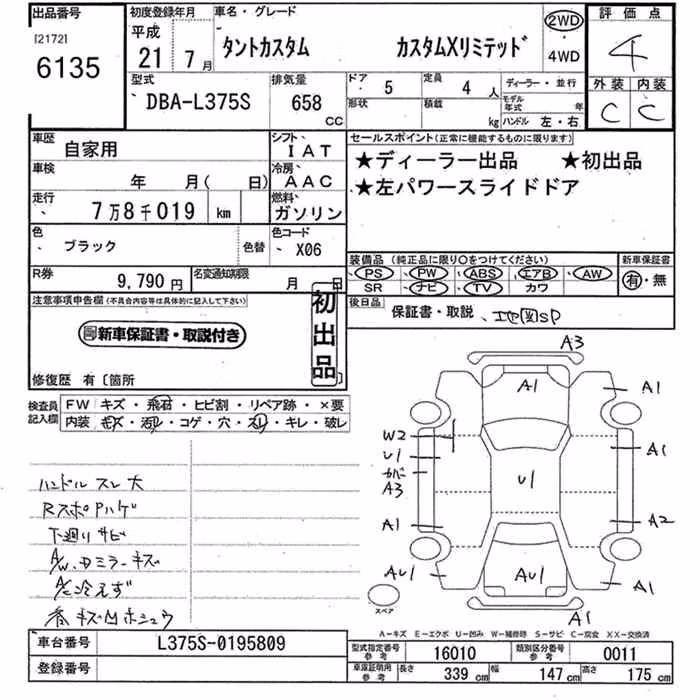 出品番号 初度登録年月 車名・グレード 2WD 評価点
[2172] 平成
6135 21年 7月 タントカスタム カスタムXリミテッド 4WD 4
型式 排気量 ドア 5 定員 4人 ディーラー・並行 外装 内装
DBA-L375S 658 CC 形状 積載 kg モデル年式 年 C C
ハンドル 左・右
車歴 自家用 シフト IAT セールスポイント(正常に機能するものに限ります)
車検 年 月( 日) 冷房 AAC ★ディーラー出品 ★初出品
走行 7万8千019 km 燃料 ガソリン ★左パワースライドドア
色 ブラック 色替 色コード X06
装備品(純正品に限り○をつけてください) 新車保証書
R券 9,790円 名変通知期限 月 日 PS PW ABS エアB AW 有・無
SR ナビ TV カワ
注意事項申告欄(不具合内容等は具体的に記入して下さい) 初出品 後日品 保証書・取説、地図SD
新車保証書・取説付き
修復歴 有〔箇所
検査員記入欄 FW キズ・飛石・ヒビ割・リペア跡・×要
内装 キズ・汚レ・コゲ・穴・スレ・キレ・破レ
A3
A1 A1
W2
U1 U1 A1
A3
A1 A2
AU1 AU1 A1
スペア A1
ハンドル スレ大
RスポPハゲ
下廻りサビ
A/W、Dミラーキズ
A/C冷えず
A-キズ E-エクボ U-凹み W-補修跡 S-サビ C-腐食 XX-交換済
車台番号 L375S-0195809 型式指定番号 参考 16010 類別区分番号 参考 0011
登録番号 車庫証明用 参考 長さ 339cm 幅 147cm 高さ 175cm